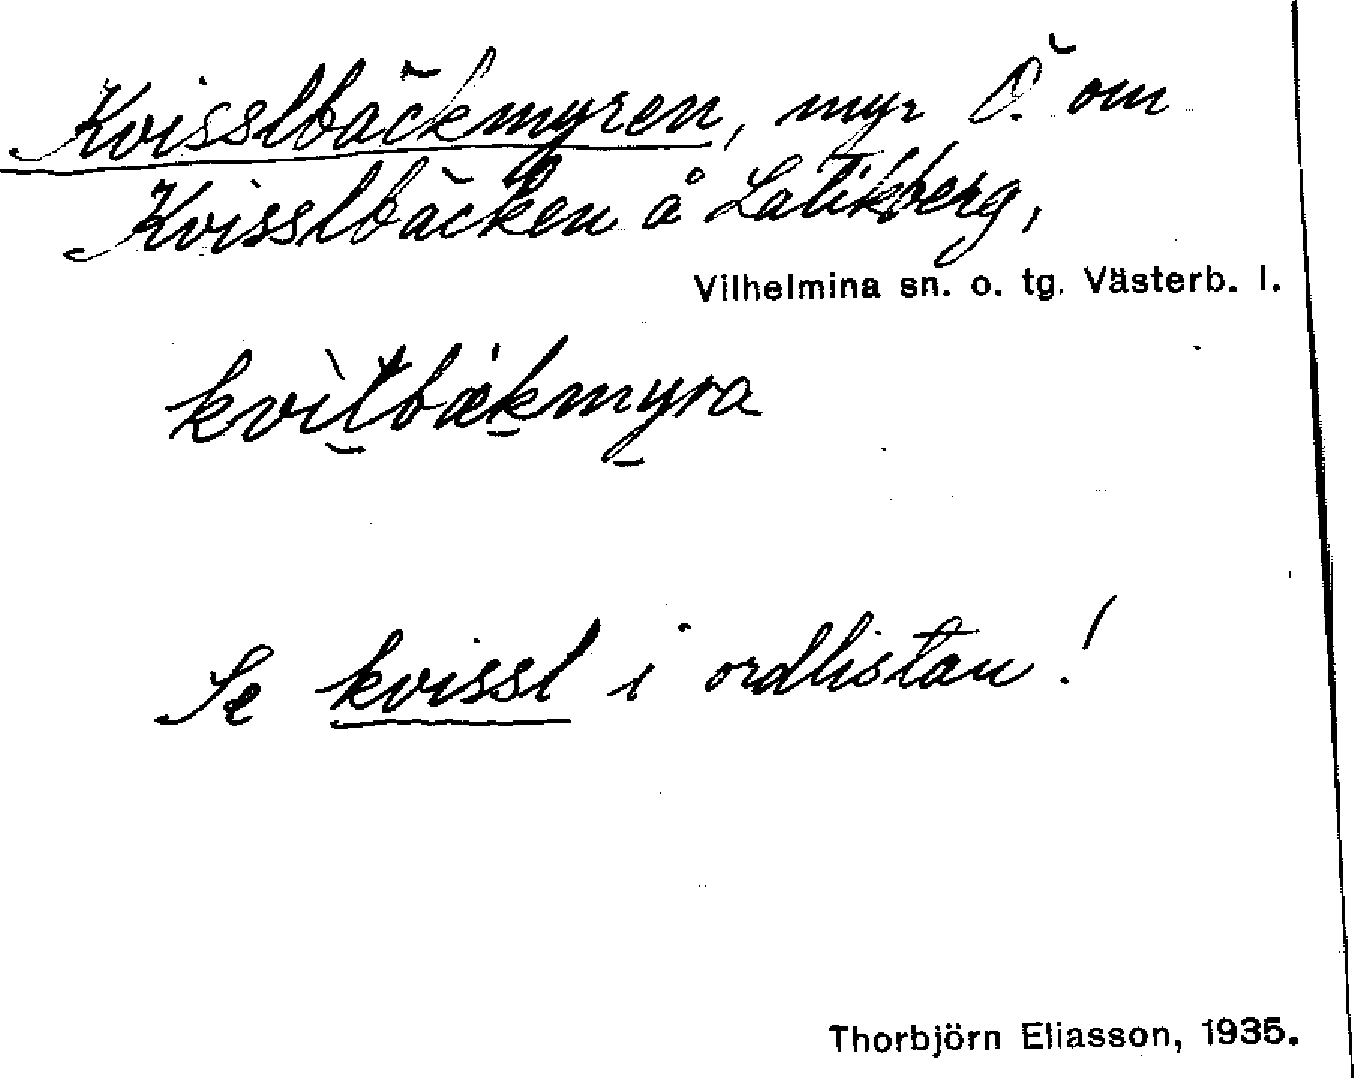 Kvisslbäckmyren, myr Ö. om
Kvisslbäcken å Latikberg,
Vilhelmina sn. o. tg. Västerb. l.
Se kvissl i ordlistan!
Thorbjörn Eliasson, 1935.